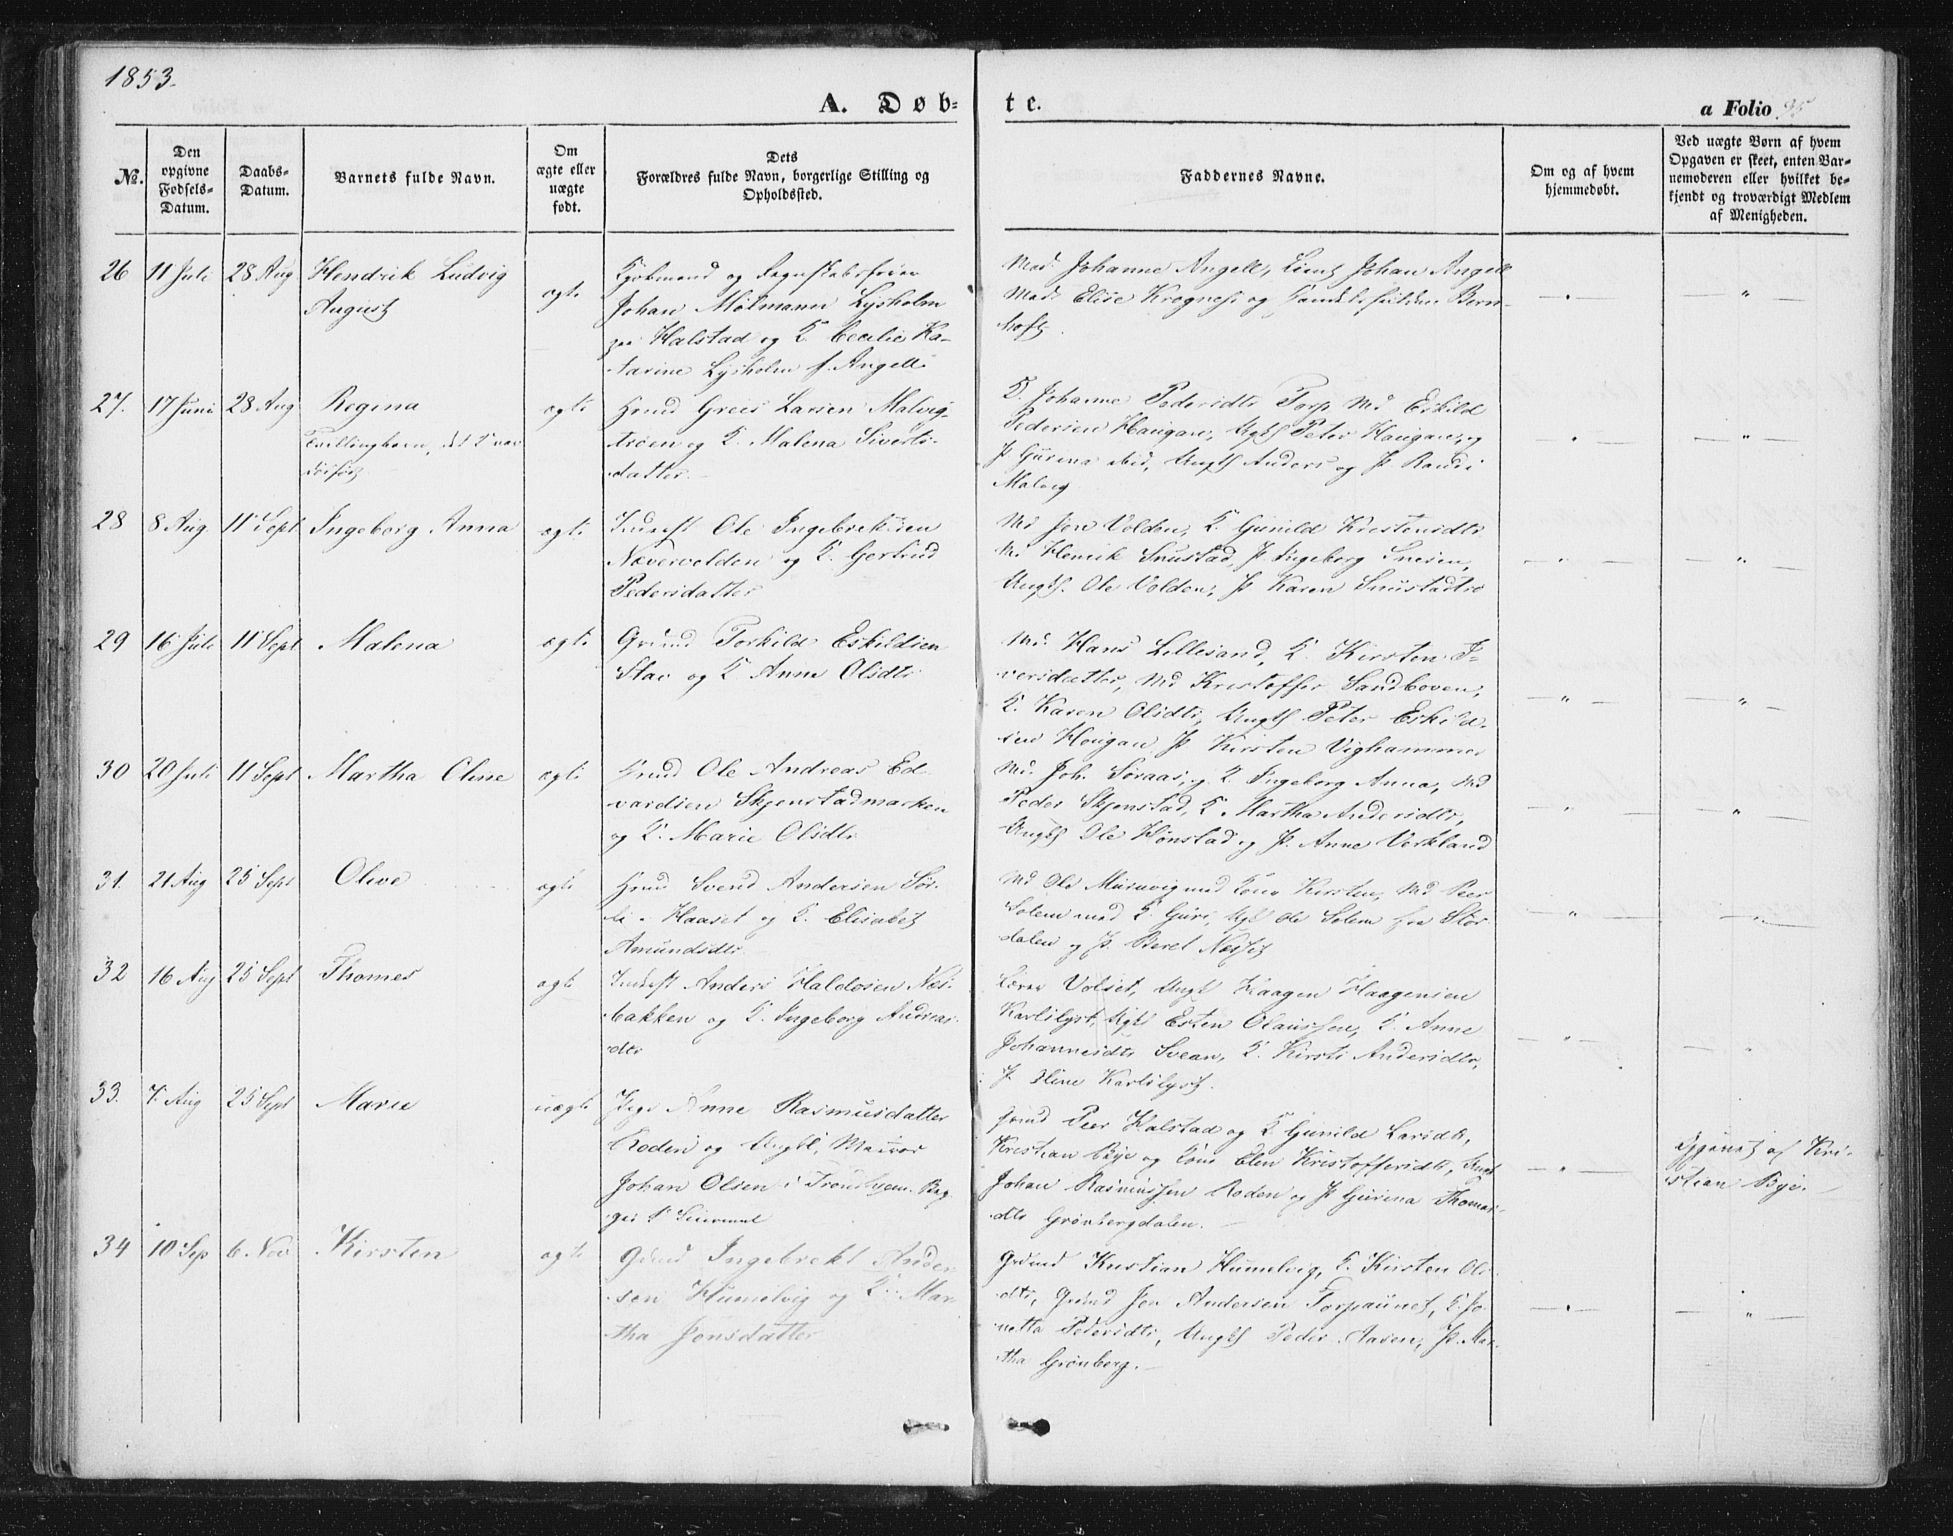 1853.
A. Døb-
te.
a Folio 95
№.
Den
opgivne
Fødsels-
Datum.
Daabs-
Datum.
Barnets fulde Navn.
Om
ægte eller
uægte
født.
Dets
Forældres fulde Navn, borgerlige Stilling og
Opholdssted.
Faddernes Navne.
Om og af hvem
hjemmedøbt.
Ved uægte Børn af hvem
Opgaven er skeet, enten Bar-
nemoderen eller hvilket be-
kjendt og troværdigt Medlem
af Menigheden.
26 11 Juli 28 Aug Hendrik Ludvig
August
ægte
Kjøbmand og
Johan Mølmann Lysholm
paa Halstad og K. Cecilie Ka-
tarine Lysholm f. Angell
Mad. Johanne Angell, Lieut Johan Angell
Mad. Elise Krogness og Bern-
hoft.
27. 17 Juni 28 Aug Regina
Tvillingbarn, det var
dødfødt
ægte
Grd Larsen Malvig
troen og K. Malena Siverts-
datter.
K. Johanne Pedersdtr Torp Md Eskild
Pedersen Haugan, Ungk Peter Haugan, og
P. Gurina ibid, Ungk Anders og P. Randi
Malvig
28 8 Aug 11 Sept Ingeborg Anna
ægte
Inderst Ole Ingebrektsen
Nævervolden og K. Gertrud
Pedersdatter
Md Jon Volden, K. Gunild Kristensdtr
Md Henrik Snustad, P. Ingeborg
Ungk. Ole Volden, P. Karen Snustadtrø
29 16 Juli 11 Sept Malena
ægte
Grdmd Torkild Eskildsen
Stav og K Anne Olsdtr
Md. Hans Lillesand, K. Kirsten I-
versdatter, Md Kristoffer Sandboven,
K. Karen Olsdtr, Ungk Peter Eskild-
sen Haugan P. Kirsten Vighammer
30 20 Juli 11 Sept Martha Oline
ægte
Ole Andreas Ed-
vardsen Skjenstadmarken
og K. Marie Olsdtr
Md. Joh. Søraas, og K. Ingeborg Anna, Md
Peder Skjenstad, K. Martha Andersdtr,
Ungk Ole Hønstad og P. Anne Verkland
31. 21 Aug 25 Sept Olive
ægte
Svend Andersen Sør-
li i Haaset og K. Elisabet
Amundsdtr
Md Ole Muruvig med Kone Kirsten, Md Peer
Solem med K. Guri, Ungk Ole Solem fra Stør-
dalen og P. Beret Næsset
32 16 Aug 25 Sept Thomes
ægte
Inderst Anders Haldosen Næs-
bakken og K. Ingeborg Andreas-
dtr
Lærer Volset, Ungk Haagen Haagensen
Karlslyst, Ungk Esten Olaussen, K. Anne
Johannesdtr Svean, K. Kirsti Andersdtr,
P. Oline Karlslyst.
33. 7. Aug 25 Sept Marie
uægte
Pige Anne Rasmusdatter
Roden og Ungk. Murer
Johan Olsen i Trondhjem. Beg-
ges 1ste Leiermaal
Peer Halstad og K Gunild Larsdtr,
Kristian Bye og Kone Elen Kristoffersdtr, Ungk
Johan Rasmussen Roden og P. Gurina Thomas-
dtr Grønbergdalen.
Opgivet af Kri-
stian Bye.
34 10 Sep 6 Nov Kirsten
ægte
Grdmd Ingebrekt Ander-
sen Humelvig og K. Mar-
tha Jonsdatter
Grdmd Kristian Humelvig, K. Kirsten Ols-
dtr, Grdmd Jon Andersen Torpaunet, K. Jo-
netta Pedersdtr, Ungk Peder Aasen, P. Mar-
tha Grønberg.